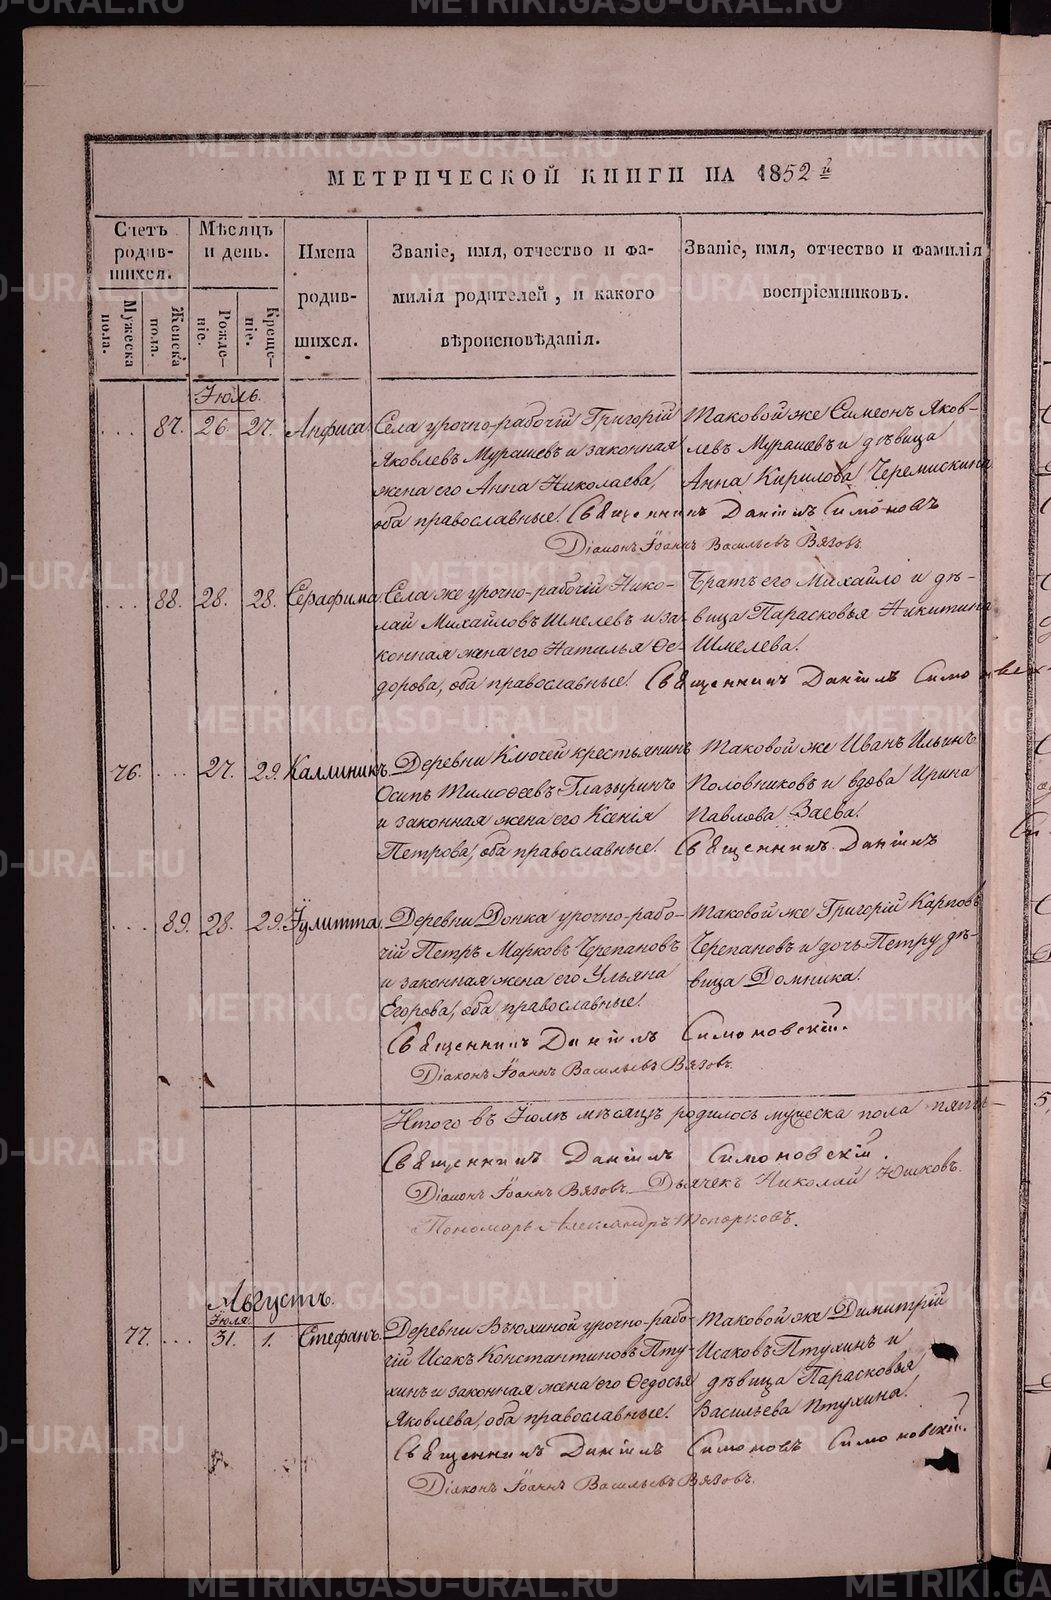 МЕТРИЧЕСКОЙ КНИГИ НА 1852 й
Счетъ родив- шихся.
Мужеска пола.
Женска пола.
Мѣсяцъ и день.
Рожде- ніе.
Креще- ніе.
Имена родив- шихся.
Званіе, имя, отчество и фа-
милія родителей, и какого
вѣроисповѣданія.
Званіе, имя, отчество и фамилія
воспріемниковъ.
Іюль.
87. 26. 27. Анфиса.
Села урочно-рабочій Григорій
Яковлевъ Мурашевъ и законная
жена его Анна Николаева,
оба православные.
Таковой же Симеонъ Яков-
левъ Мурашевъ и дѣвица
Анна Кирилова Черемискина
Священникъ Даніилъ Симоновъ
Діаконъ Іоаннъ Васильевъ Вязовъ.
88. 28. 28. Серафима.
Села же урочно-рабочій Нико-
лай Михайловъ Шмелевъ и за-
конная жена его Наталья Ѳе-
дорова, оба православные.
Братъ его Михайло и дѣ-
вица Парасковья Никитина
Шмелева.
Священникъ Даніилъ
76. 27. 29. Каллиникъ.
Деревни Ключей крестьянинъ
Осипъ Тимоѳеевъ Глазыринъ
и законная жена его Ксенія
Петрова, оба православные.
Таковой же Иванъ Ильинъ
Половниковъ и вдова Ирина
Павлова Заева.
Священникъ Даніилъ
89. 28. 29. Іулитта.
Деревни Донка урочно-рабо-
чій Петръ Марковъ Черепановъ
и законная жена его Ульяна
Егорова, оба православные.
Таковой же Григорій Карповъ
Черепановъ и дочь Петру дѣ-
вица Домника.
Священникъ Даніилъ Симоновскій.
Діаконъ Іоаннъ Васильевъ Вязовъ.
Итого въ Іюлѣ мѣсяцѣ родилось мужеска пола пять
Священникъ Даніилъ Симоновскій.
Діаконъ Іоаннъ Вязовъ. Дьячекъ Николай Юшковъ.
Пономарь Александръ Топорковъ.
Августъ.
Іюля
77. 31. 1. Стефанъ.
Деревни Вьюхиной урочно-рабо-
чій Исакъ Константиновъ Пту-
хинъ и законная жена его Ѳедосья
Яковлева, оба православные.
Таковой же Димитрій
Исаковъ Птухинъ и
дѣвица Парасковья
Васильева Птухина.
Священникъ Даніилъ Симоновъ Симоновскій.
Діаконъ Іоаннъ Васильевъ Вязовъ.
METRIKI.GASO-URAL.RU